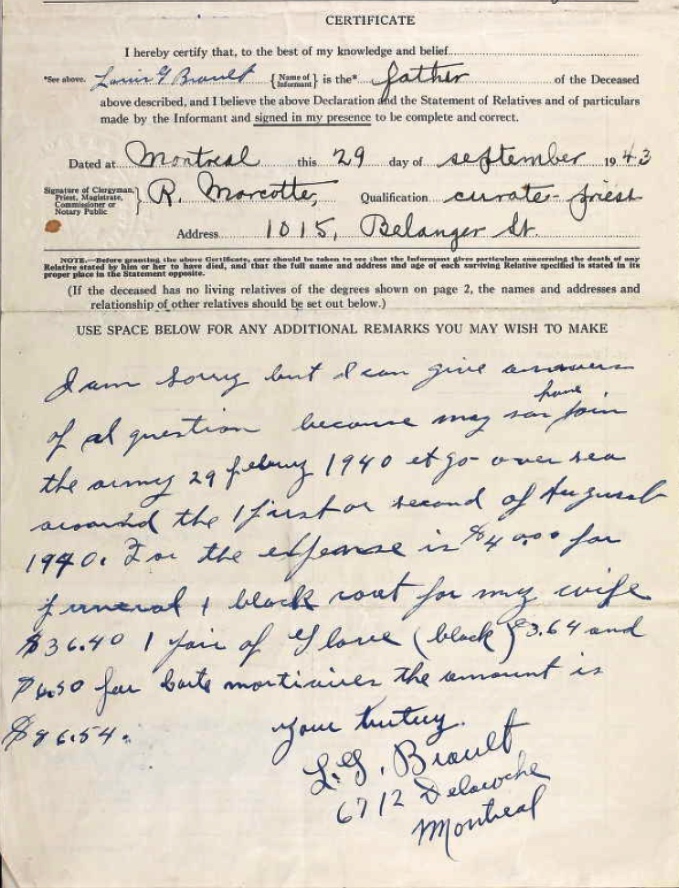 CERTIFICATE
I hereby certify that, to the best of my knowledge and belief
*See above. Louis G Brault {Name of Informant} is the* father of the Deceased
above described, and I believe the above Declaration and the Statement of Relatives and of particulars
made by the Informant and signed in my presence to be complete and correct.
Dated at Montreal this 29 day of september 1943
Signature of Clergyman, Priest, Magistrate, Commissioner or Notary Public } R. Marcotte, Qualification curate-priest
Address 1015, Belanger St.
NOTE.—Before granting the above Certificate, care should be taken to see that the Informant gives particulars concerning the death of any
Relative stated by him or her to have died, and that the full name and address and age of each surviving Relative specified is stated in its
proper place in the Statement opposite.
(If the deceased has no living relatives of the degrees shown on page 2, the names and addresses and
relationship of other relatives should be set out below.)
USE SPACE BELOW FOR ANY ADDITIONAL REMARKS YOU MAY WISH TO MAKE
I am sorry but I can give answers
of al question because may son have join
the army 29 febury 1940 et go over sea
around the 1 first or second of August
1940. For the expense is $40.00 for
funeral 1 black coat for my wife
$36.40 1 pair of Glove (black) $3.64 and
$6.50 for carte mortuaires the amount is
$86.54.
your
L.G. Brault
6712 Delaroche
Montreal